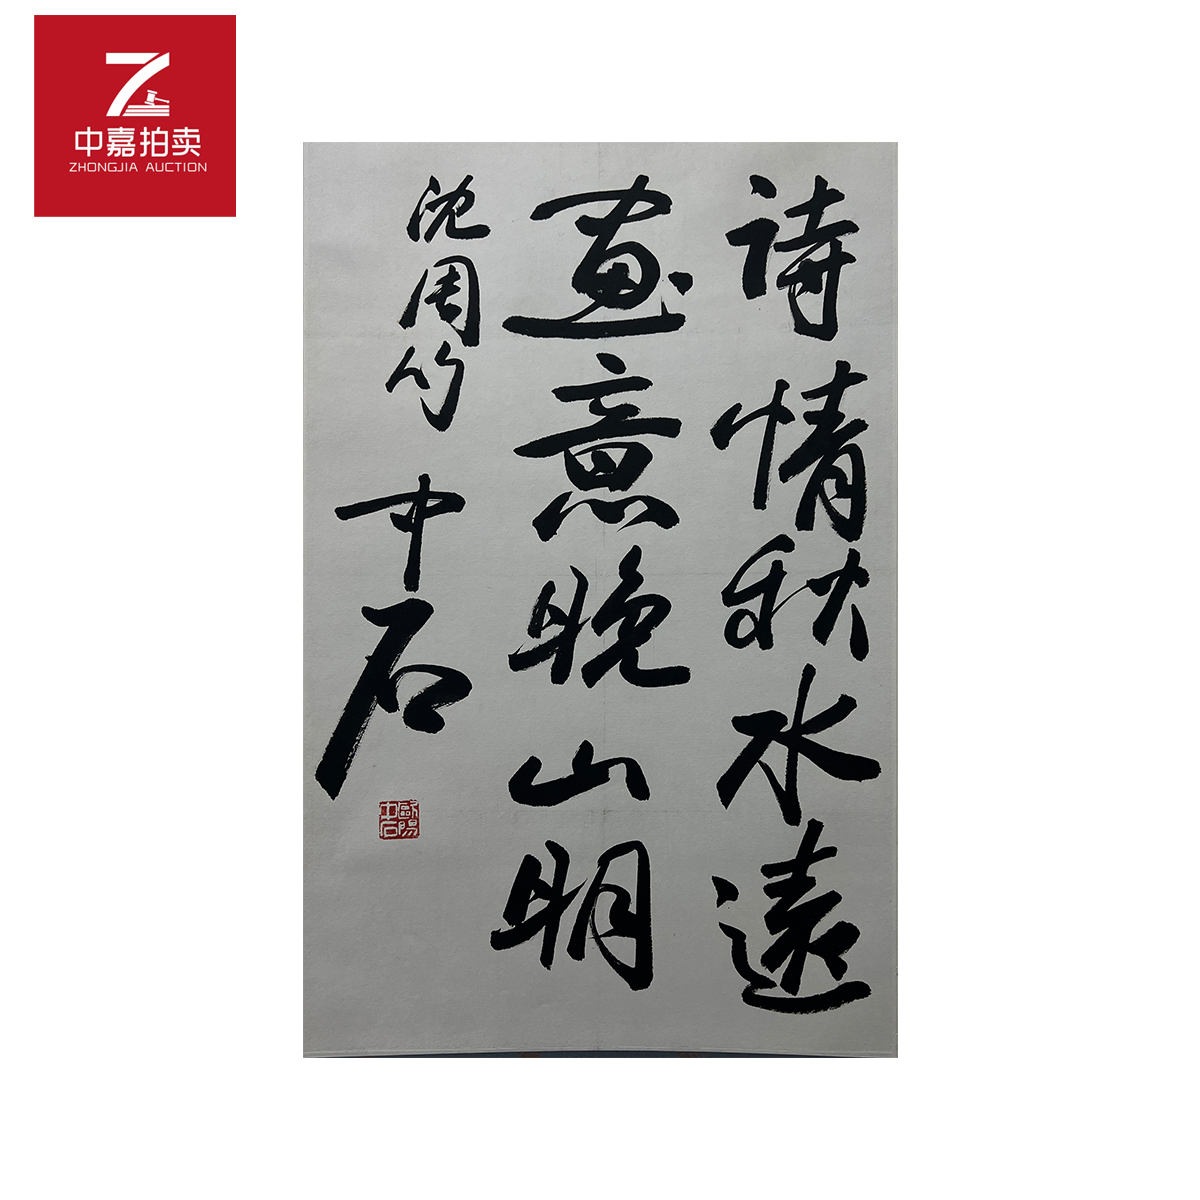 中嘉拍卖
ZHONGJIA AUCTION
詩情秋水遠
画意晚山明
沈周竹
中石
歐陽
中石